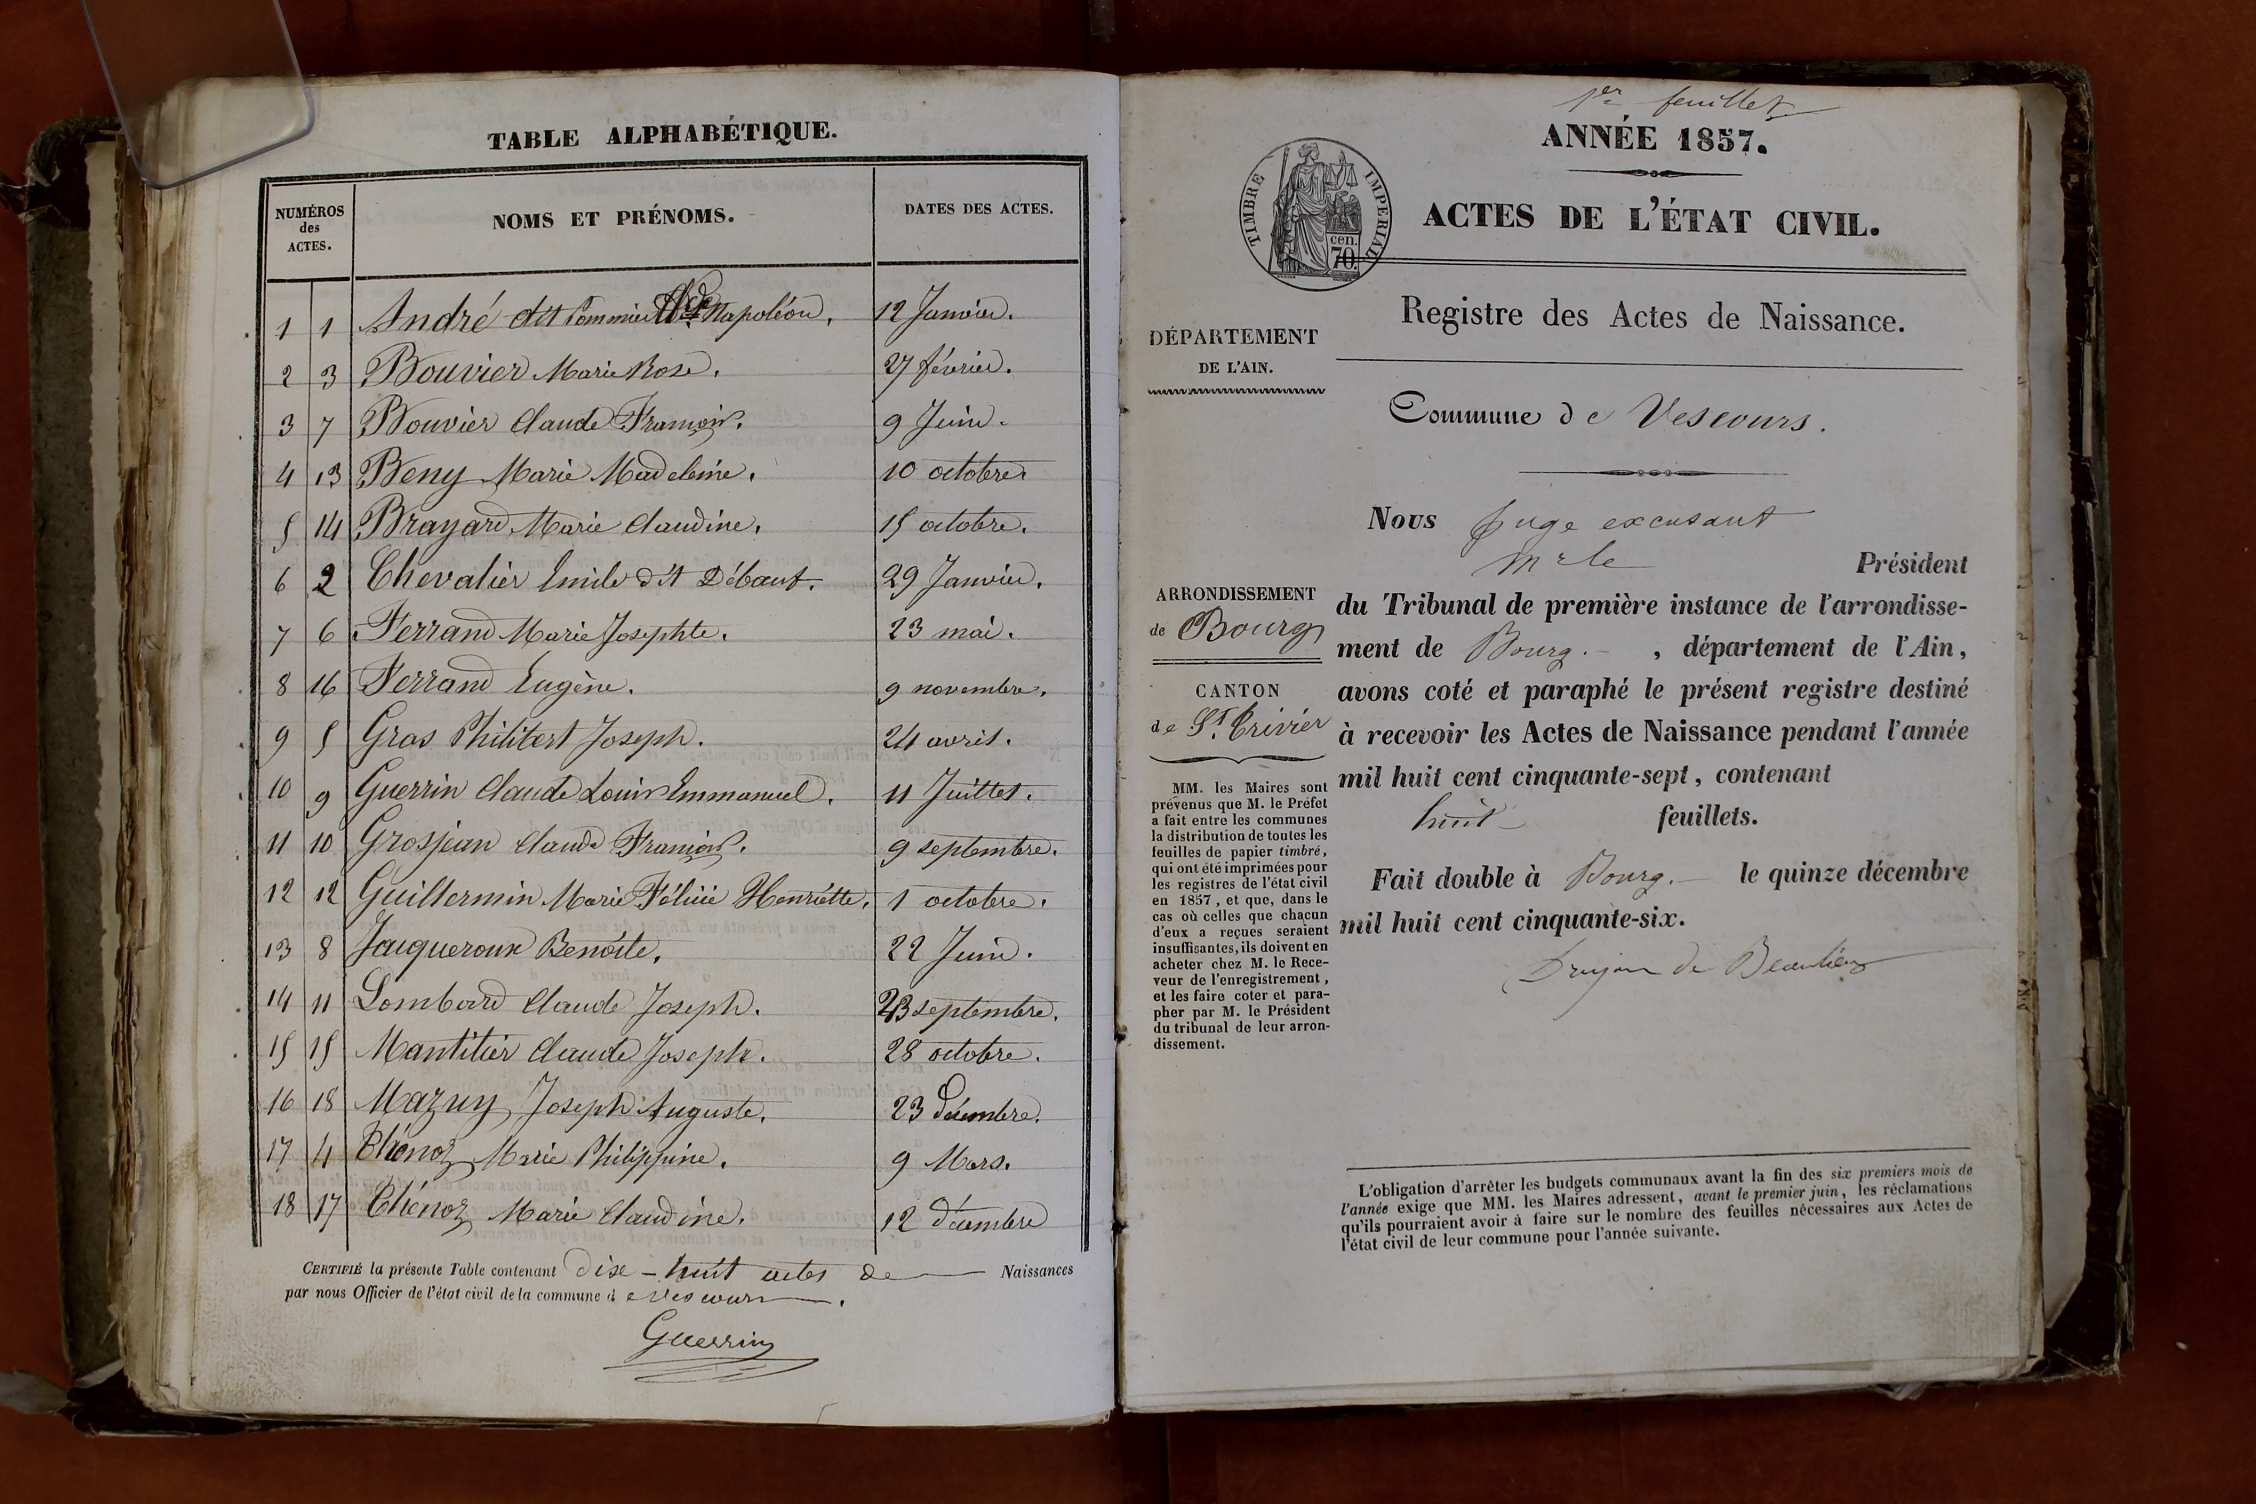 TABLE ALPHABÉTIQUE.
NUMÉROS des ACTES. NOMS ET PRÉNOMS. DATES DES ACTES.
1 1 André dit Pommier Napoléon. 12 Janvier.
2 3 Bouvier Marie Rose. 27 février.
3 7 Bouvier Claude François. 9 Juin.
4 13 Beny Marie Madeleine. 10 octobre.
5 14 Brayard Marie Claudine. 15 octobre.
6 2 Chevalier Emile dit Débaut. 29 Janvier.
7 6 Ferrand Marie Josephte. 23 mai.
8 16 Ferrand Eugène. 9 novembre.
9 5 Gras Philibert Joseph. 24 avril.
10 9 Guerrin Claude Louis Emmanuel. 11 Juillet.
11 10 Grosjean Claude François. 9 septembre.
12 12 Guillermin Marie Félicie Henriette. 1 octobre.
13 8 Jacqueroux Benoîte. 22 Juin.
14 11 Lombard Claude Joseph. 23 septembre.
15 15 Mantilier Claude Joseph. 28 octobre.
16 18 Mazuy Joseph Auguste. 23 Décembre.
17 4 Chénoz Marie Philippine. 9 Mars.
18 17 Chénoz Marie Claudine. 12 décembre
CERTIFIÉ la présente Table contenant dix-huit actes de Naissances
par nous Officier de l'état civil de la commune de Vescours.
Guerrin
1er feuillet
ANNÉE 1857.
TIMBRE IMPERIAL
cen.
70.
ACTES DE L'ÉTAT CIVIL.
Registre des Actes de Naissance.
DÉPARTEMENT
DE L'AIN.
Commune de Vescours.
ARRONDISSEMENT
de Bourg
CANTON
de St. Trivier
MM. les Maires sont
prévenus que M. le Préfet
a fait entre les communes
la distribution de toutes les
feuilles de papier timbré,
qui ont été imprimées pour
les registres de l'état civil
en 1857, et que, dans le
cas où celles que chacun
d'eux a reçues seraient
insuffisantes, ils doivent en
acheter chez M. le Rece-
veur de l'enregistrement,
et les faire coter et para-
pher par M. le Président
du tribunal de leur arron-
dissement.
Nous Juge excusant
Mr le Président
du Tribunal de première instance de l'arrondisse-
ment de Bourg. , département de l'Ain,
avons coté et paraphé le présent registre destiné
à recevoir les Actes de Naissance pendant l'année
mil huit cent cinquante-sept, contenant
huit feuillets.
Fait double à Bourg. le quinze décembre
mil huit cent cinquante-six.
Drujon de Beaulieu
L'obligation d'arrêter les budgets communaux avant la fin des six premiers mois de
l'année exige que MM. les Maires adressent, avant le premier juin, les réclamations
qu'ils pourraient avoir à faire sur le nombre des feuilles nécessaires aux Actes de
l'état civil de leur commune pour l'année suivante.